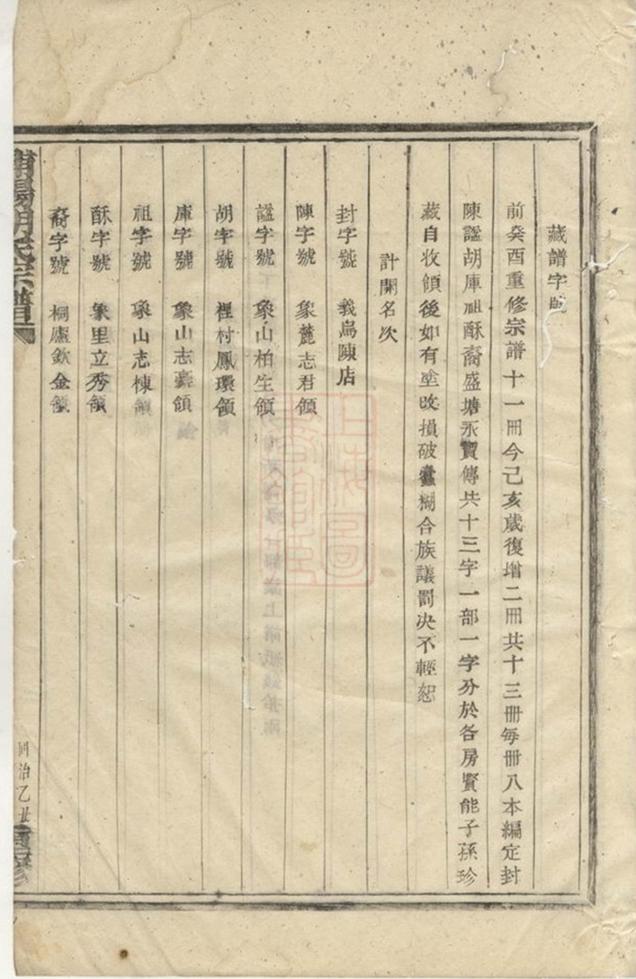 藏譜字號
前癸酉重修宗譜十一冊今己亥歲復增二冊共十三冊每冊八本編定封
陳謚胡庫祖酥裔盛塘永寳傳共十三字一部一字分於各房賢能子孫珍
藏自收領後如有塗改損破蠹糊合族議罰决不輕恕
計開名次
封字號 義烏陳店
陳字號 象麓志君領
謚字號 象山柏生領
胡字號 裡村鳳環領
庫字號 象山志豪領
祖字號 象山志棟領
酥字號 象里立秀領
裔字號 桐廬欽金領
胡氏宗譜
同治乙丑重修